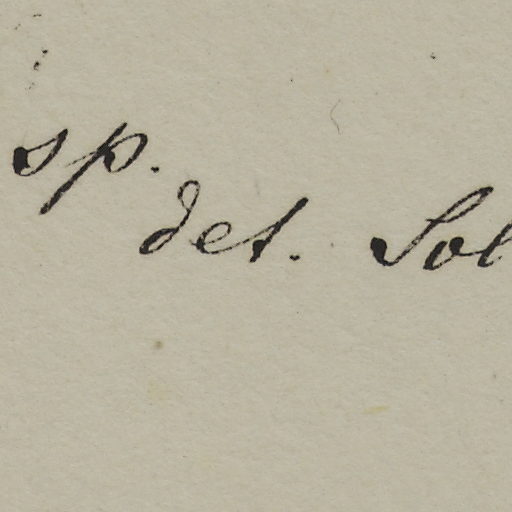 sp.
det. Sol